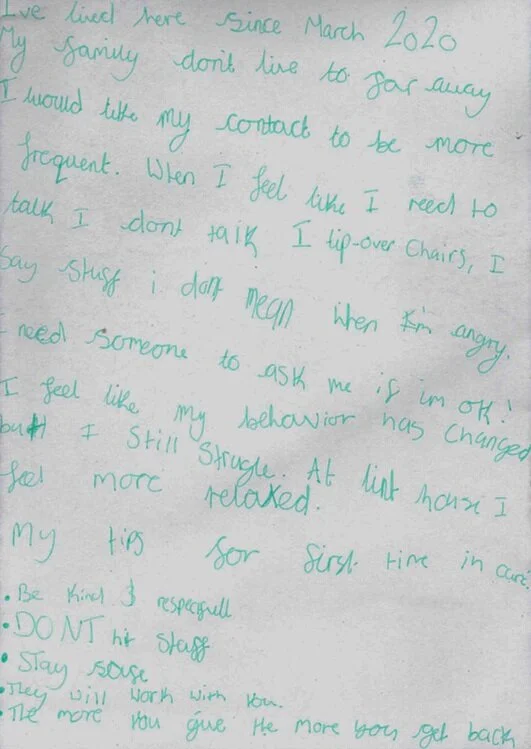 I've lived here since March 2020
My family don't live to far away
I would like my contact to be more
frequent. When I feel like I need to
talk I dont talk I tip-over Chairs, I
Say stuff i dont mean when I'm angry.
I need someone to ask me if im ok!
I feel like my behavior has changed
but I Still Strugle. At lint house I
feel more relaxed.
My tips for first time in care
• Be Kind & respecfull
• DONT hit Staff
• Stay safe
• They will work with you.
• The more you give the more you get back